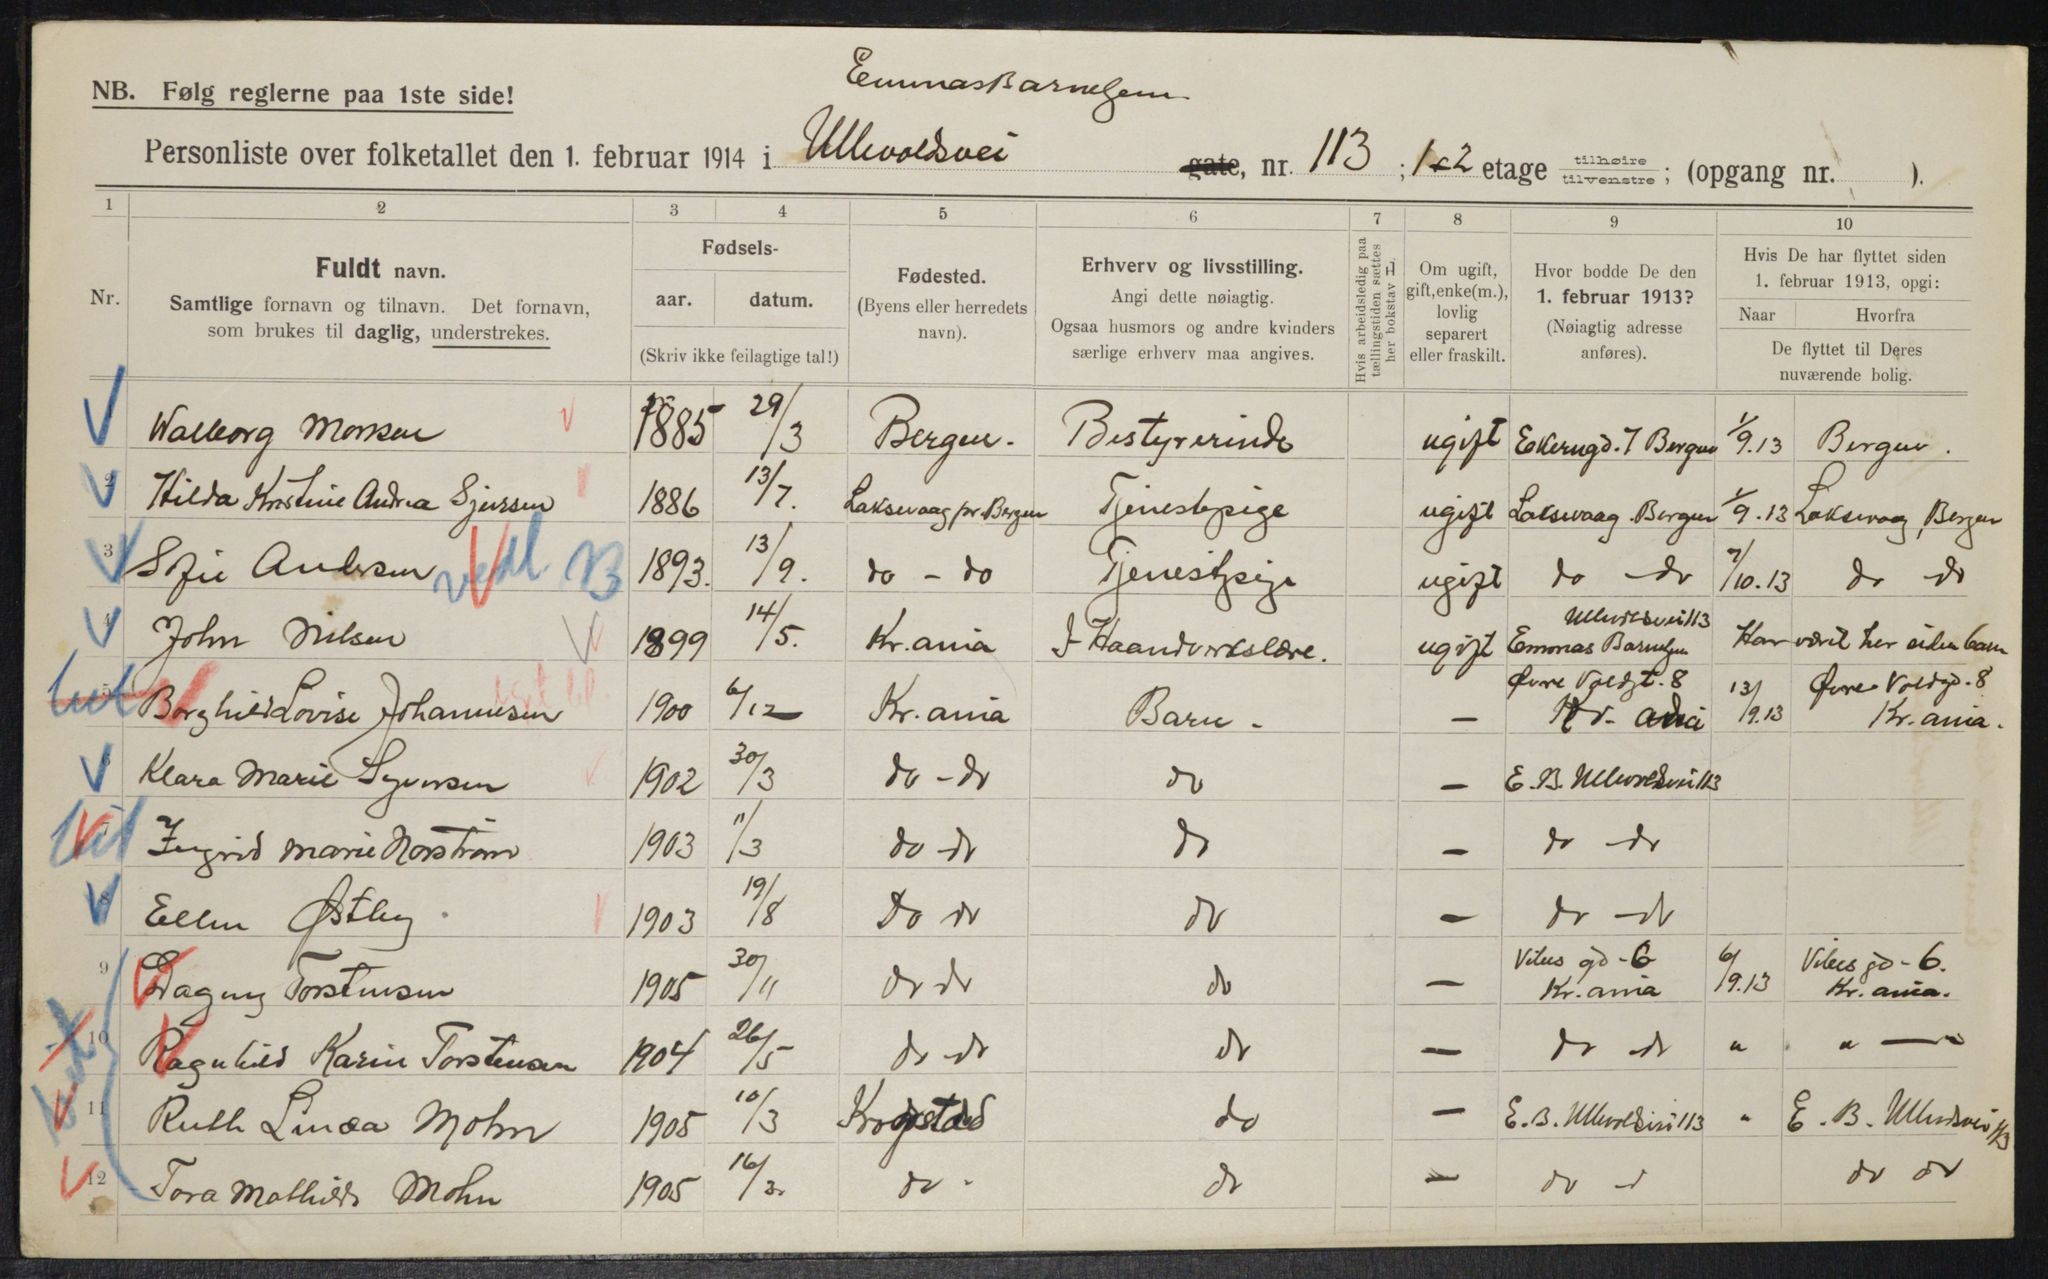 EmmasBarnehjem
NB. Følg reglerne paa 1ste side!
Personliste over folketallet den 1. februar 1914 i Ullevoldsvei gate, nr. 113 ; 1&2 etage tilhøire tilvenstre; (opgang nr. ).
1 2 3 4 5 6 7 8 9 10
Nr.
Fuldt navn.
Samtlige fornavn og tilnavn. Det fornavn, som brukes til daglig, understrekes.
Fødsels-
aar. datum.
(Skriv ikke feilagtige tal!)
Fødested.
(Byens eller herredets navn).
Erhverv og livsstilling.
Angi dette nøiagtig.
Ogsaa husmors og andre kvinders særlige erhverv maa angives.
Hvis arbeidsledig paa tællingstiden sættes her bokstav L.
Om ugift, gift, enke(m.), lovlig separert eller fraskilt.
Hvor bodde De den 1. februar 1913?
(Nøiagtig adresse anføres).
Hvis De har flyttet siden 1. februar 1913, opgi:
Naar Hvorfra
De flyttet til Deres nuværende bolig.
Walborg Monsen 1885 29/3 Bergen. Bestyrerinde ugift Ekerngd. 7 Bergen 1/9.13 Bergen.
2 Hilda Kristine Andrea Sjursen 1886 13/7. Laksevaag pr. Bergen Tjenestepige ugift Laksevaag. Bergen 1/9.13 Laksevaag, Bergen
3 Sofie Andersen B 1893. 13/9. do - do Tjenestepige ugift do - do 7/10.13 do do
4 John Nilsen 1899 14/5. Kr.ania I Haandverkslære. ugift Ullevoldsvei 113 Emmas Barnehjem Har været her siden barn
5 Borghild Lovise Johannesen 1900 6/12 Kr.ania Barn - — Øvre Voldgt. 8 13/9.13 Øvre Voldgd. 8 Kr.ania.
6 Klara Marie Syversen 1902 30/3 do - do do — E.B. Ullevoldsvei 113
7 Ingrid Marie Norstrøm 1903 11/3 do do do — do do
8 Ellen Østby 1903 19/8 Do do do — do - do
9 Dagny Torstensen 1905 30/11 do do do — Vibes gd - 6 Kr.ania 6/9.13 Vibes gd - 6. Kr.ania.
10 Ragnhild Karin Torstensen 1904 26/5 do do do — do do " " —
11 Ruth Linæa Mohn 1905 10/3 Krogstad do — E.B. Ullevoldsvei 113 " E.B. Ullevoldsvei 113
12 Tora Mathilde Mohn 1905 16/3. do - do — do - do do